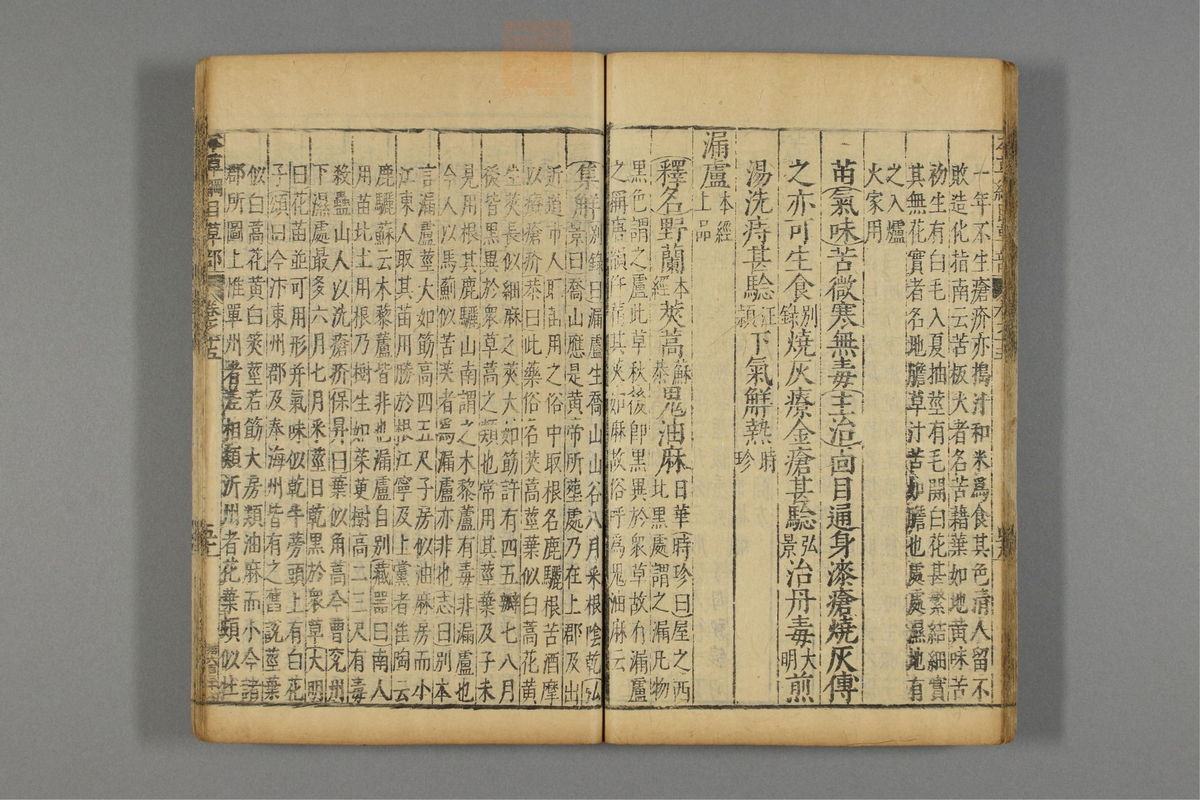 十年不生瘡疥亦擣汁和米爲食其色清人留不
敗造化指南云苦板大者名苦藉葉如地黃味苦
初生有白毛入夏抽莖有毛開白花甚繁結細實
其無花實者名地膽草汁苦如膽也處處濕地有
之入爐
火家用
苗氣味苦微寒無毒主治面目通身漆瘡燒灰傅
之亦可生食別錄燒灰療金瘡甚驗弘景治丹毒大明煎
湯洗痔甚驗汪頴下氣解熱時珍
漏盧本經上品
釋名野蘭本經莢蒿蘇恭鬼油麻日華時珍曰屋之西北黑處謂之漏凡物
黑色謂之盧此草秋後即黑異於衆草故有漏盧
之稱唐韻作其莢如麻故俗呼爲鬼油麻云
集解別錄曰漏盧生喬山山谷八月采根陰乾弘
景曰喬山應是黃帝所葬處乃在上郡及出
近道市人取苗用之俗中取根名鹿驪根苦酒摩
以療瘡疥恭曰此藥俗名莢蒿莖葉似白蒿花黃
生莢長似細麻之莢大如筯許有四五瓣七八月
後皆黑異於衆草蒿之類也常用其莖葉及子未
見用根其鹿驪山南謂之木黎蘆有毒非漏盧也
今人以馬薊似苦芺者爲漏盧亦非也志曰別本
言漏盧莖大如筯高四五尺子房似油麻房而小
江東人取其苗用勝於根江寧及上黨者佳陶云
鹿驪蘇云木藜蘆皆非也漏盧自別藏器曰南人
用苗北土用根乃樹生如茱萸樹高二三尺有毒
殺蠱山人以洗瘡疥保昇曰葉似角蒿今曹兗州
下濕處最多六月七月采莖日乾黑於衆草大明
曰花苗並可用形并氣味似乾牛蒡頭上有白花
子頌曰今汴東州郡及秦海州皆有之舊說莖葉
似白蒿花黃白莢莖若筯大房類油麻而小今諸
郡所圖上惟單州者差相類沂州者花葉頗似牡
本草綱目草部 卷之十五